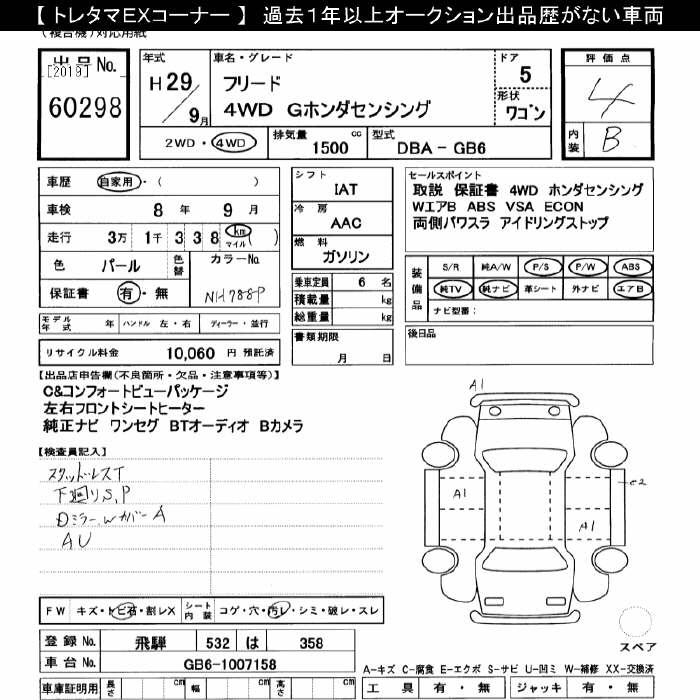 【 トレタマEXコーナー 】 過去１年以上オークション出品歴がない車両
(複合機)対応用紙
出品No.
[2019]
60298
年式
H 29/9月
車名・グレード
フリード
4WD Gホンダセンシング
ドア
5
形状
ワゴン
2WD・4WD
排気量
1500 cc
型式
DBA - GB6
評価点
4
内装
B
車歴 自家用・( )
車検 8年 9月
走行 3万 1千 3 3 8 km マイル ( )
色 パール 色替 カラーNo.
NH788P
保証書 有・無
シフト
IAT
冷房
AAC
燃料
ガソリン
乗車定員 6 名
積載量 kg
総重量 kg
セールスポイント
取説 保証書 4WD ホンダセンシング
WエアB ABS VSA ECON
両側パワスラ アイドリングストップ
装備品 S/R 純A/W P/S P/W ABS
純TV 純ナビ 革シート 外ナビ エアB
ナビ型番：
モデル年式 年 ハンドル 左・右 ディーラー・並行
リサイクル料金 10,060 円 預託済
書類期限
月 日
後日品
【出品店申告欄(不良箇所・欠品・注意事項等)】
C&コンフォートビューパッケージ
左右フロントシートヒーター
純正ナビ ワンセグ BTオーディオ Bカメラ
【検査員記入】
スタッドレスT
下廻りS,P
Dミラー,WカバーA
AU
A1
A1
A1
e2
FW キズ・トビ石・割レX シート内装 コゲ・穴・汚レ・シミ・破レ・スレ
登録No. 飛騨 532 は 358
車台No. GB6-1007158
車庫証明用 長さ cm 幅 cm 高さ cm
スペア
A-キズ C-腐食 E-エクボ S-サビ U-凹ミ W-補修 XX-交換済
工具 有・無 ジャッキ 有・無